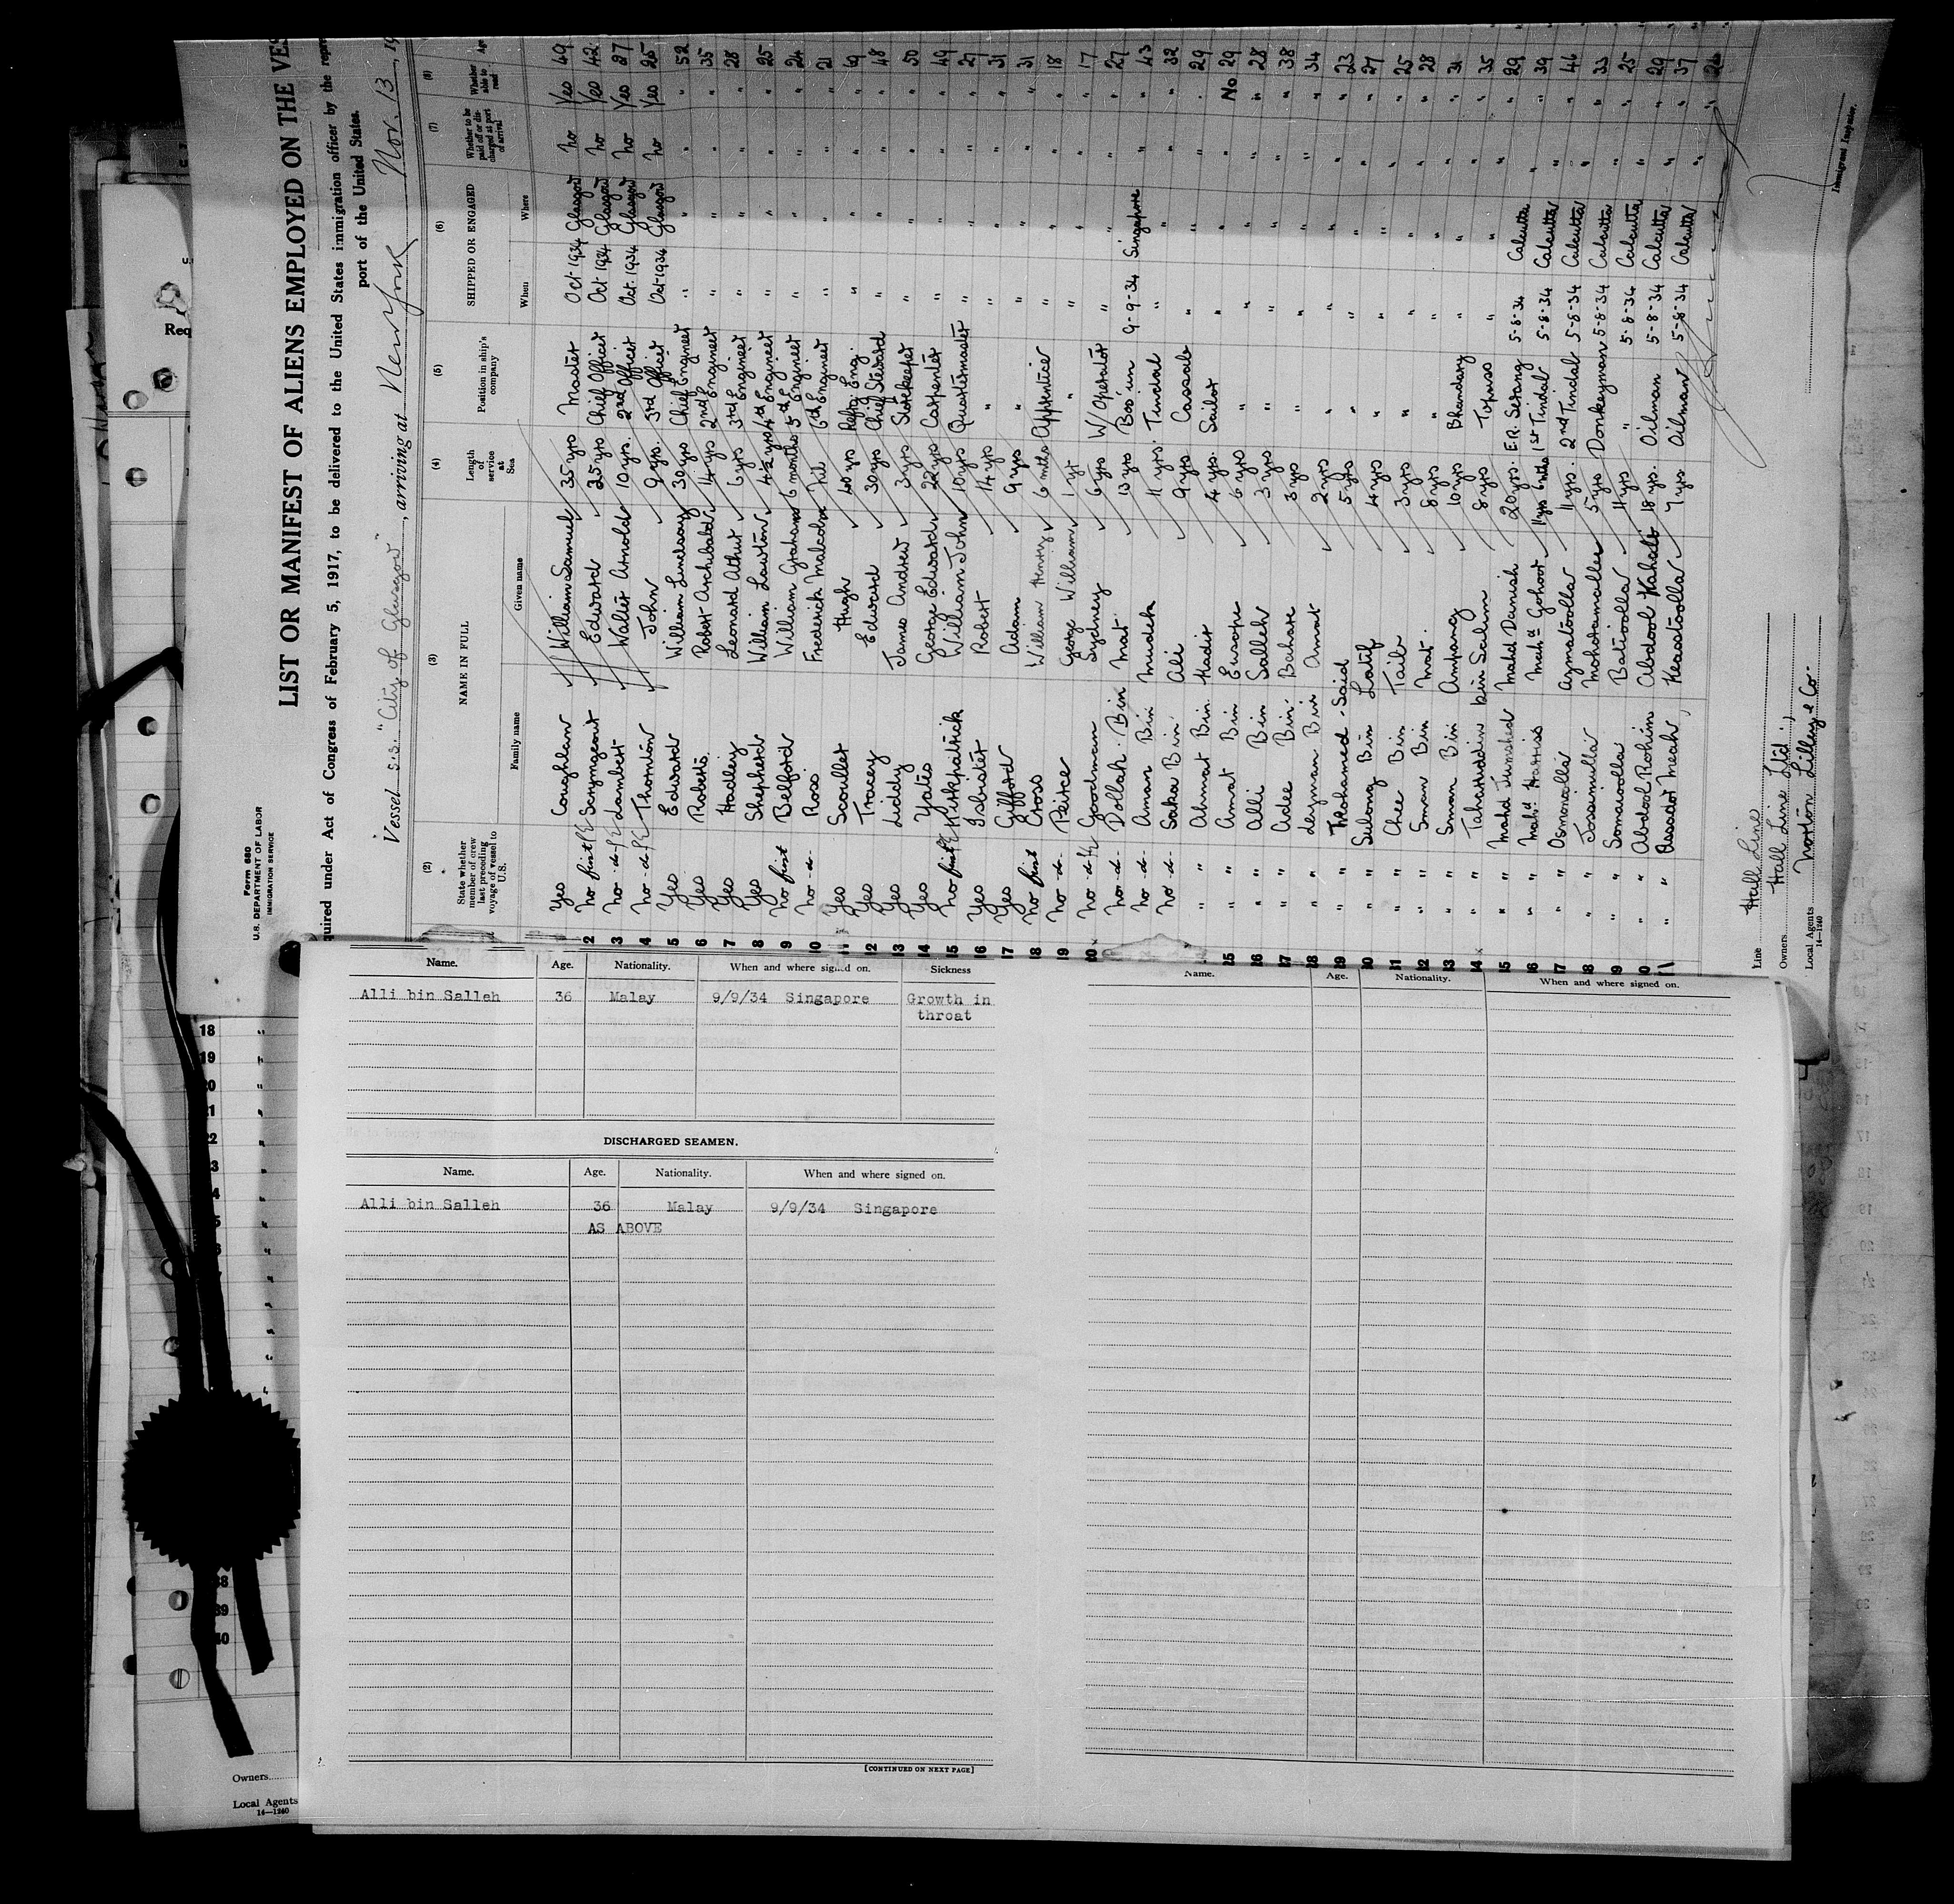 Form 680
U.S. DEPARTMENT OF LABOR
IMMIGRATION SERVICE
LIST OR MANIFEST OF ALIENS EMPLOYED ON THE VES
quired under Act of Congress of February 5, 1917, to be delivered to the United States immigration officer by the repre
port of the United States.
Vessel S.S. "City of Glasgow", arriving at New York Nov. 13, 19
(2) (3) (4) (5) (6) (7) (8)
State whether member of crew last preceding voyage of vessel to U.S. NAME IN FULL Length of service at Sea Position in ship's company SHIPPED OR ENGAGED Whether to be paid off or discharged at port of arrival Whether able to read Age
Family name Given name When Where
Yes Coughlan William Samuel 35 yrs Master Oct. 1934 Glasgow no Yes 49
2 no first Scrymgeour Edward 25 yrs Chief Officer Oct. 1934 Glasgow no Yes 42
3 no -do- Lambert Walter Arnold 10 yrs. 2nd Officer Oct. 1934 Glasgow no Yes 27
4 no -do- Thornton John 9 yrs. 3rd Officer Oct. 1934 Glasgow no Yes 25
5 Yes Edward William Lindsay 30 yrs Chief Engineer " " " " 52
6 Yes Roberts Robert Archibald 14 yrs 2nd Engineer " " " " 35
7 Yes Hadley Leonard Athur 6 yrs 3rd Engineer " " " " 28
8 Yes Shepherd William Lawton 4½ yrs 4th Engineer " " " " 25
9 no first Belford William Graham 6 months 5th Engineer " " " " 24
10 no -do- Ross Frederick Malcolm Nil 6th Engineer " " " " 21
11 Yes Scoullar Hugh 40 yrs Refg. Eng. " " " "
12 Yes Tracey Edward 30 yrs Chief Steward " " " " 48
13 Yes Liddy James Andrew 3 yrs Storekeeper " " " " 50
14 Yes Yates George Edward 22 yrs Carpenter " " " " 49
15 no first Kirkpatrick William John 10 yrs Quartermaster " " " " 27
16 Yes Robert 14 yrs " " " " " 31
17 Yes Gifford Adam 9 yrs " " " " " 31
18 no first Cross William Henry 6 mths Apprentice " " " " 18
19 no -do- George William 1 yr " " " " " 17
20 no -do- Goodman Sydney 6 yrs W/Operator " " " " 27
no -do- Dollah Bin Mat 13 yrs Bos'un 9-9-34 Singapore " " 43
no -do- Aman Bin Mudek 11 yrs. Tindal " " " " 32
no -do- Saka Bin Ali 9 yrs Cassab " " " " 29
" " Ahmat Bin Hadir 4 yrs. Sailor " " " No 29
25 " " Amat Bin Eusope 6 yrs " " " " " 28
26 " " Alli Bin Salleh 3 yrs " " " " " 38
27 " " Adee Bin Bahare 3 yrs " " " " " 34
28 " " Leyman Bin Amat 2 yrs " " " " " 23
29 " " Mohamed Said 5 yrs " " " " " 27
30 " " Sulong Bin Latif 4 yrs " " " " " 25
31 " " Chee Bin Taib 3 yrs " " " " " 28
32 " " Sman Bin Mat. 8 yrs " " " " " 31
33 " " Sman Bin Ampang 10 yrs Bhandary " " " " 35
34 " " bin Salim 8 yrs Topass " " " "
35 " " Mahd Jumshed Mahd Danish 20 yrs. E.R. Serang 5-8-34 Calcutta
36 " " 1st Tindal 5-8-34 Calcutta
37 " " Osmanalli Azmatoolla 11 yrs. 2nd Tindal 5-8-34 Calcutta
38 " " 5 yrs Donkeyman 5-8-34 Calcutta
39 " " 11 yrs " 5-8-34 Calcutta
40 " " Abdool Rohim Abdool 18 yrs. Oilman 5-8-34 Calcutta
41 " " Assador Meah 7 yrs Oilman 5-8-34 Calcutta
Line Hall Line
Owners Hall Line Ltd.
Local Agents Norton Lilly & Co.
14—1240
Immigrant Inspector.
Name. Age. Nationality. When and where signed on. Sickness
Alli bin Salleh 36 Malay 9/9/34 Singapore Growth in
throat
DISCHARGED SEAMEN.
Name. Age. Nationality. When and where signed on.
Alli bin Salleh 36 Malay 9/9/34 Singapore
AS ABOVE
[CONTINUED ON NEXT PAGE]
Name. Age. Nationality. When and where signed on.
Req
18
19
39
40
Owners
Local Agents
14—1240